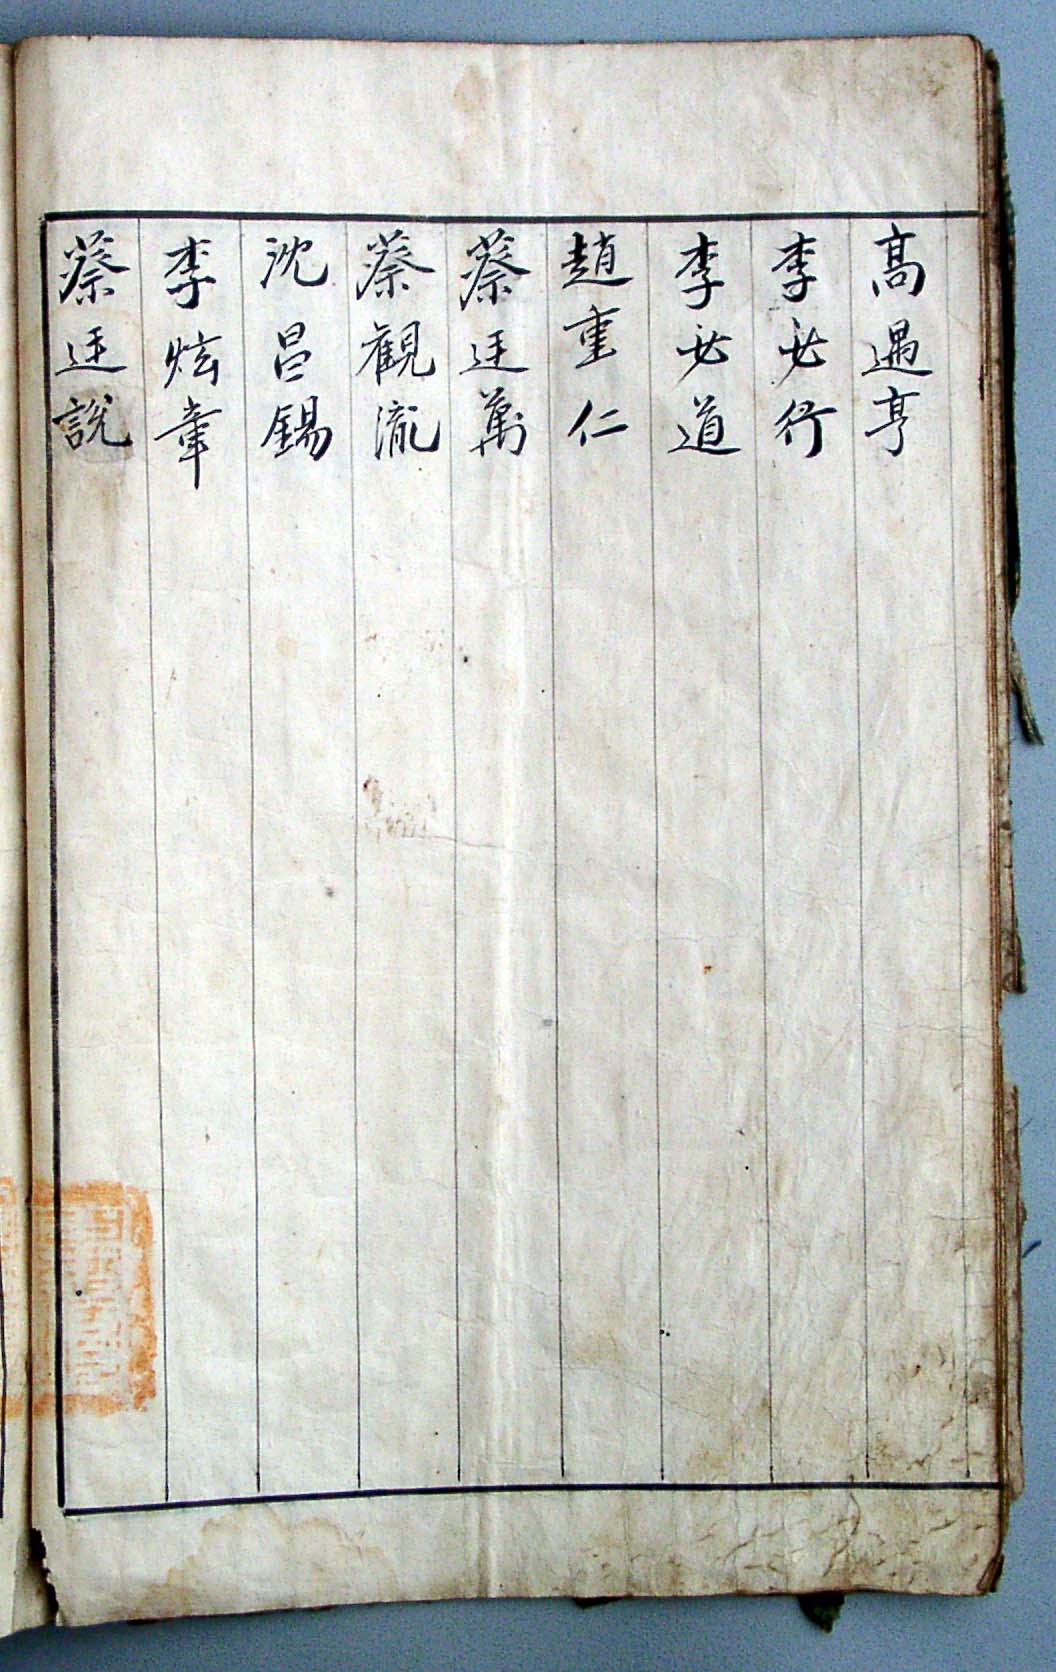 高遇亨
李必行
李必道
趙重仁
蔡廷萬
蔡觀瀧
沈呂錫
李炫韋
蔡廷說